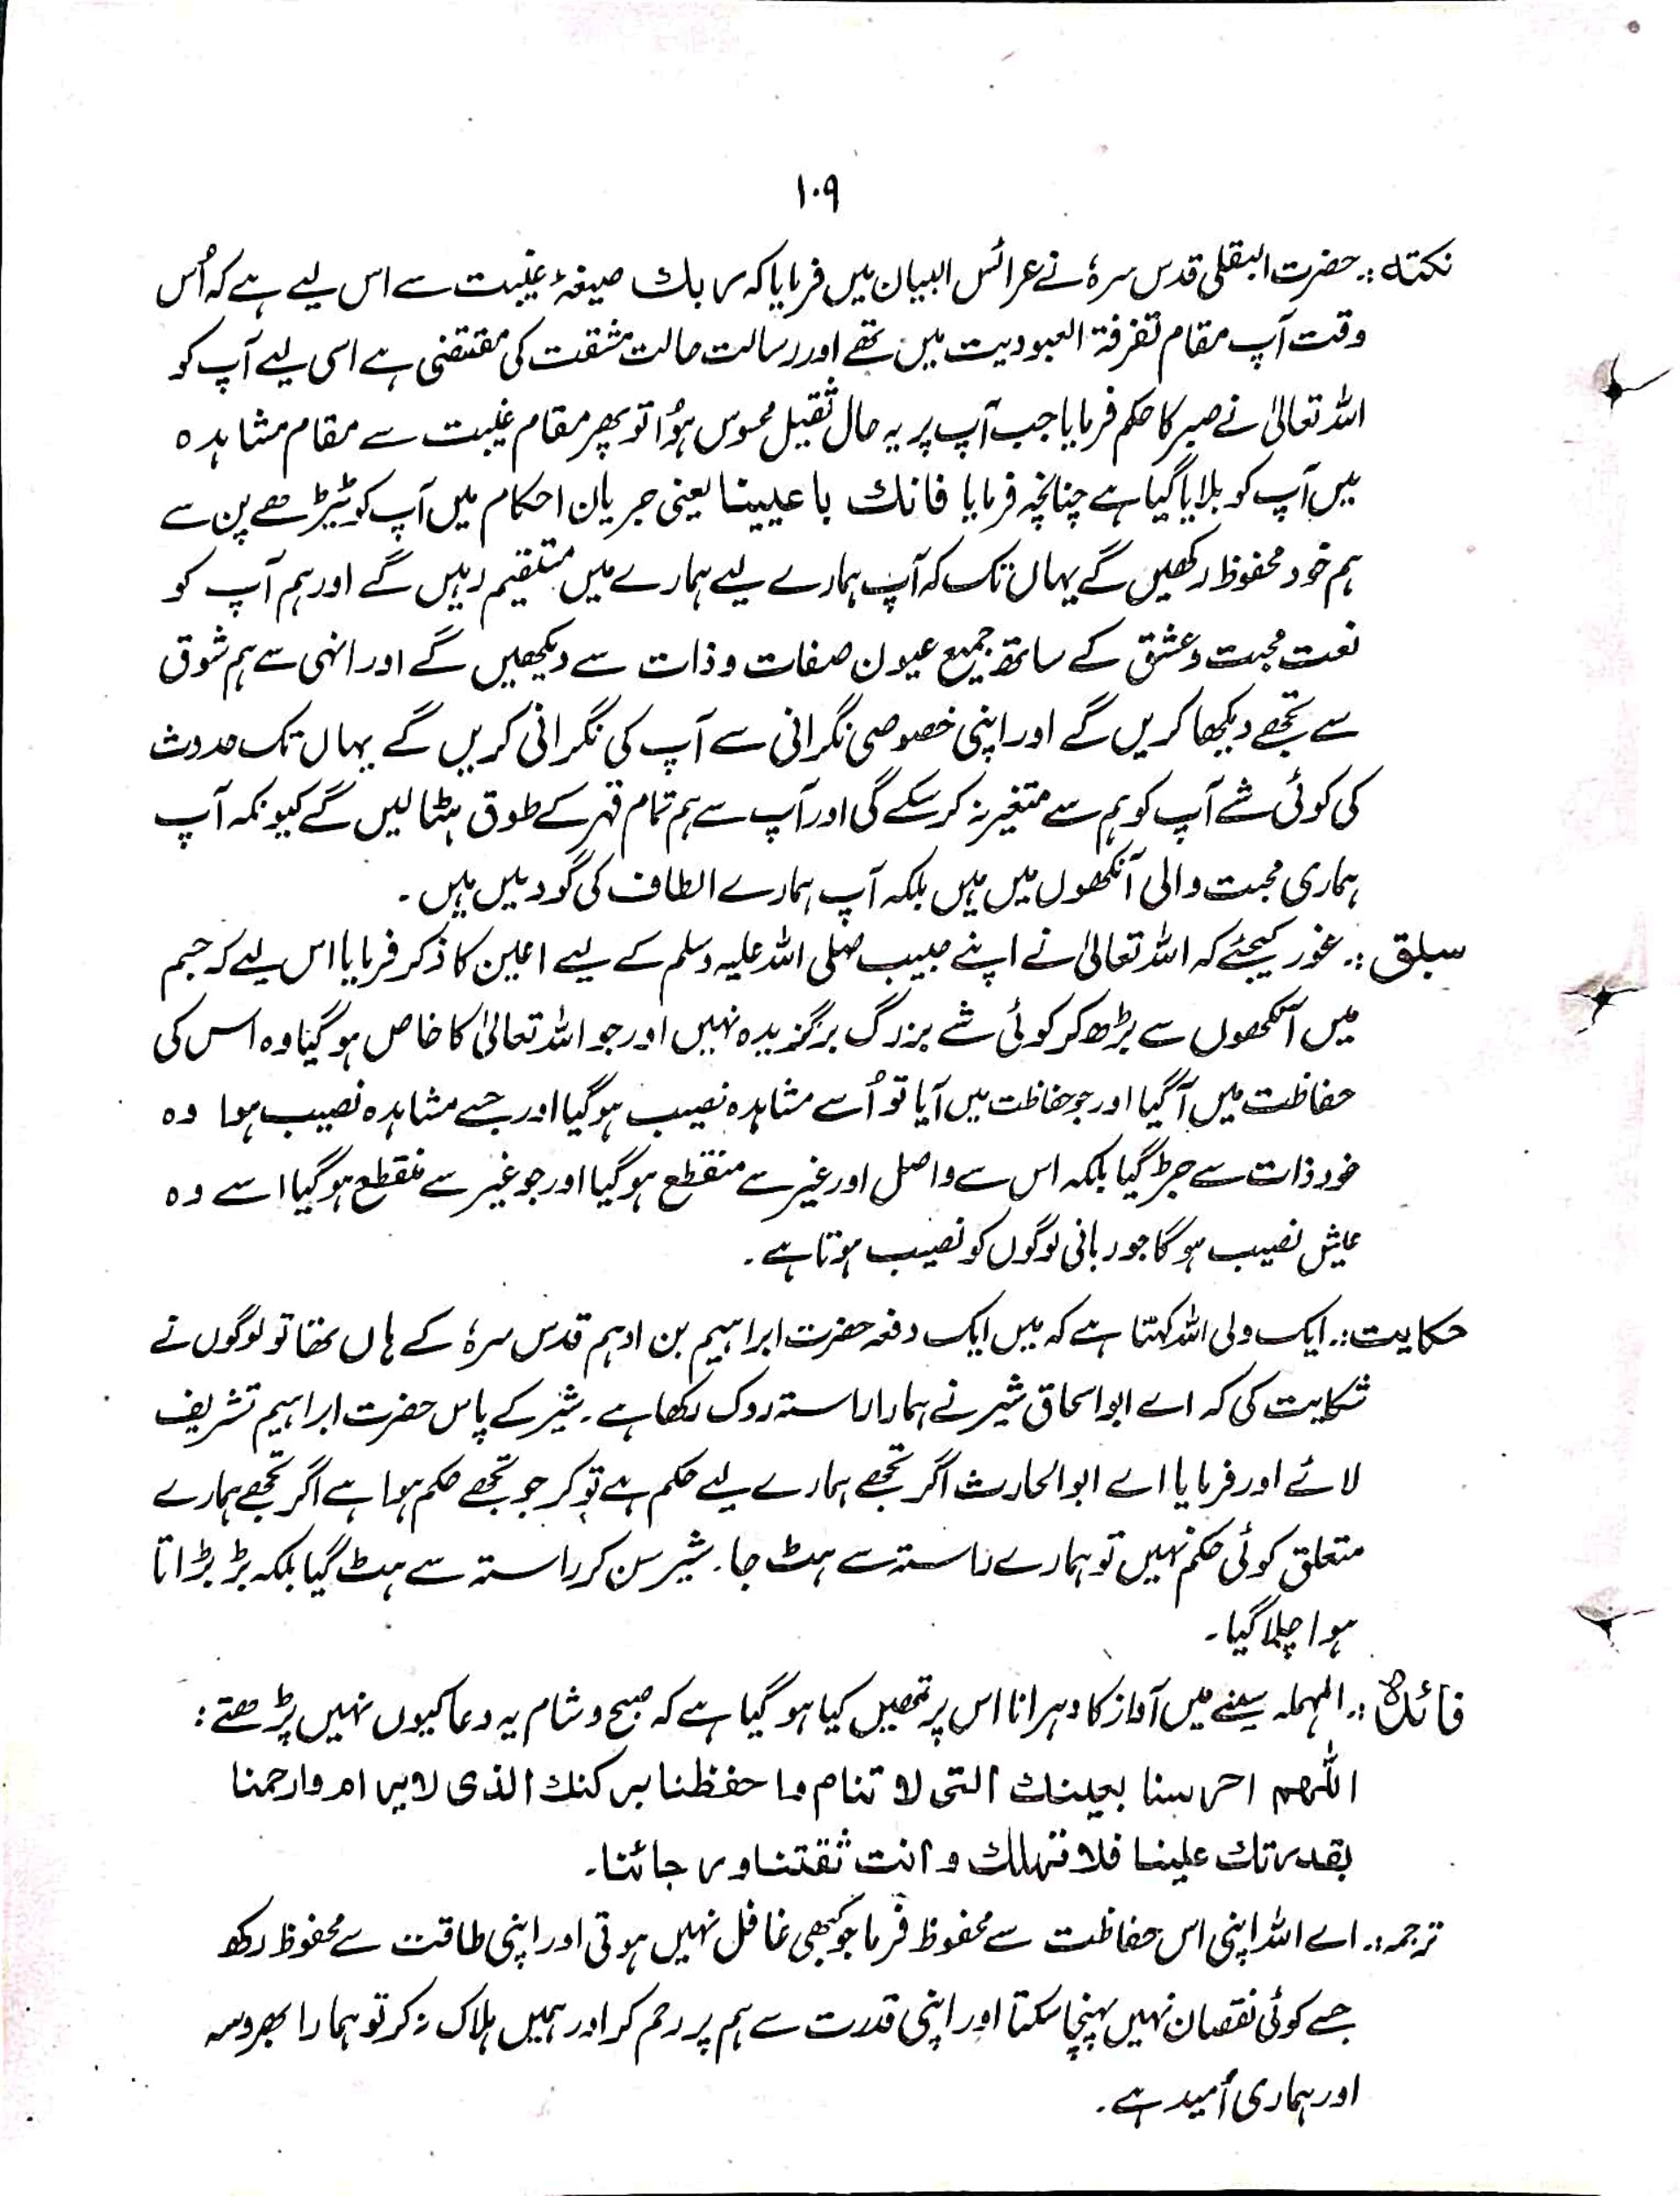 ۱۰۹
نکتہ :۔ حضرت البقلی قدس سرہٗ نے عرائس البیان میں فرمایا کہ ربک صیغۂ غیبت سے اس لیے ہے کہ اُس
وقت آپ مقام تفرقۃ العبودیت میں تھے اور رسالت حالت مشقت کی مقتضی ہے اسی لیے آپ کو
اللہ تعالیٰ نے صبر کا حکم فرمایا جب آپ پر یہ حال ثقیل محسوس ہُوا تو پھر مقام غیبت سے مقام مشاہدہ
میں آپ کو بلایا گیا ہے چنانچہ فرمایا فانك باعیینا یعنی جریان احکام میں آپ کو ٹیڑھے پن سے
ہم خود محفوظ رکھیں گے یہاں تک کہ آپ ہمارے لیے ہمارے میں مستقیم رہیں گے اور ہم آپ کو
نعت محبت و عشق کے ساتھ جمیع عیون صفات و ذات سے دیکھیں گے اور انہی سے ہم شوق
سے تجھے دیکھا کریں گے اور اپنی خصوصی نگرانی سے آپ کی نگرانی کریں گے یہاں تک حدوث
کی کوئی شے آپ کو ہم سے متغیر نہ کر سکے گی اور آپ سے ہم تمام قہر کے طوق ہٹا لیں گے کیونکہ آپ
ہماری محبت والی آنکھوں میں ہیں بلکہ آپ ہمارے الطاف کی گود میں ہیں ۔
سبلق :۔ غور کیجئے کہ اللہ تعالیٰ نے اپنے حبیب صلی اللہ علیہ وسلم کے لیے اعین کا ذکر فرمایا اس لیے کہ جسم
میں آنکھوں سے بڑھ کر کوئی شے بزرگ برگزیدہ نہیں اور جو اللہ تعالیٰ کا خاص ہو گیا وہ اس کی
حفاظت میں آگیا اور جو حفاظت میں آیا تو اُسے مشاہدہ نصیب ہوگیا اور جسے مشاہدہ نصیب ہوا وہ
خود ذات سے جڑ گیا بلکہ اس سے واصل اور غیر سے منقطع ہو گیا اور جو غیر سے منقطع ہوگیا اسے وہ
عیش نصیب ہو گا جو ربانی لوگوں کو نصیب ہوتا ہے ۔
حکایت :۔ ایک ولی اللہ کہتا ہے کہ میں ایک دفعہ حضرت ابراہیم بن ادہم قدس سرہٗ کے ہاں تھا تو لوگوں نے
شکایت کی کہ اے ابو اسحاق شیر نے ہمارا راستہ روک رکھا ہے ۔ شیر کے پاس حضرت ابراہیم تشریف
لائے اور فرمایا اے ابوالحارث اگر تجھے ہمارے لیے حکم ہے تو کر جو تجھے حکم ہوا ہے اگر تجھے ہمارے
متعلق کوئی حکم نہیں تو ہمارے راستہ سے ہٹ جا ۔ شیر سن کر راستہ سے ہٹ گیا بلکہ بڑبڑاتا
ہوا چلا گیا ۔
فائدہ :۔ الہملہ سینے میں آواز کا دہرانا اس پر تمھیں کیا ہو گیا ہے کہ صبح و شام یہ دعا کیوں نہیں پڑھتے :
اللّٰھم احرسنا بعینك التی لا تنام واحفظنا برکنك الذی لایرام وارحمنا
بقدرتك علینا فلا تہلك و انت ثقتنا و رجائنا ۔
ترجمہ :۔ اے اللہ اپنی اس حفاظت سے محفوظ فرما جو کبھی غافل نہیں ہوتی اور اپنی طاقت سے محفوظ رکھ
جسے کوئی نقصان نہیں پہنچا سکتا اور اپنی قدرت سے ہم پر رحم کر اور ہمیں ہلاک نہ کر تو ہمارا بھروسہ
اور ہماری اُمید ہے ۔